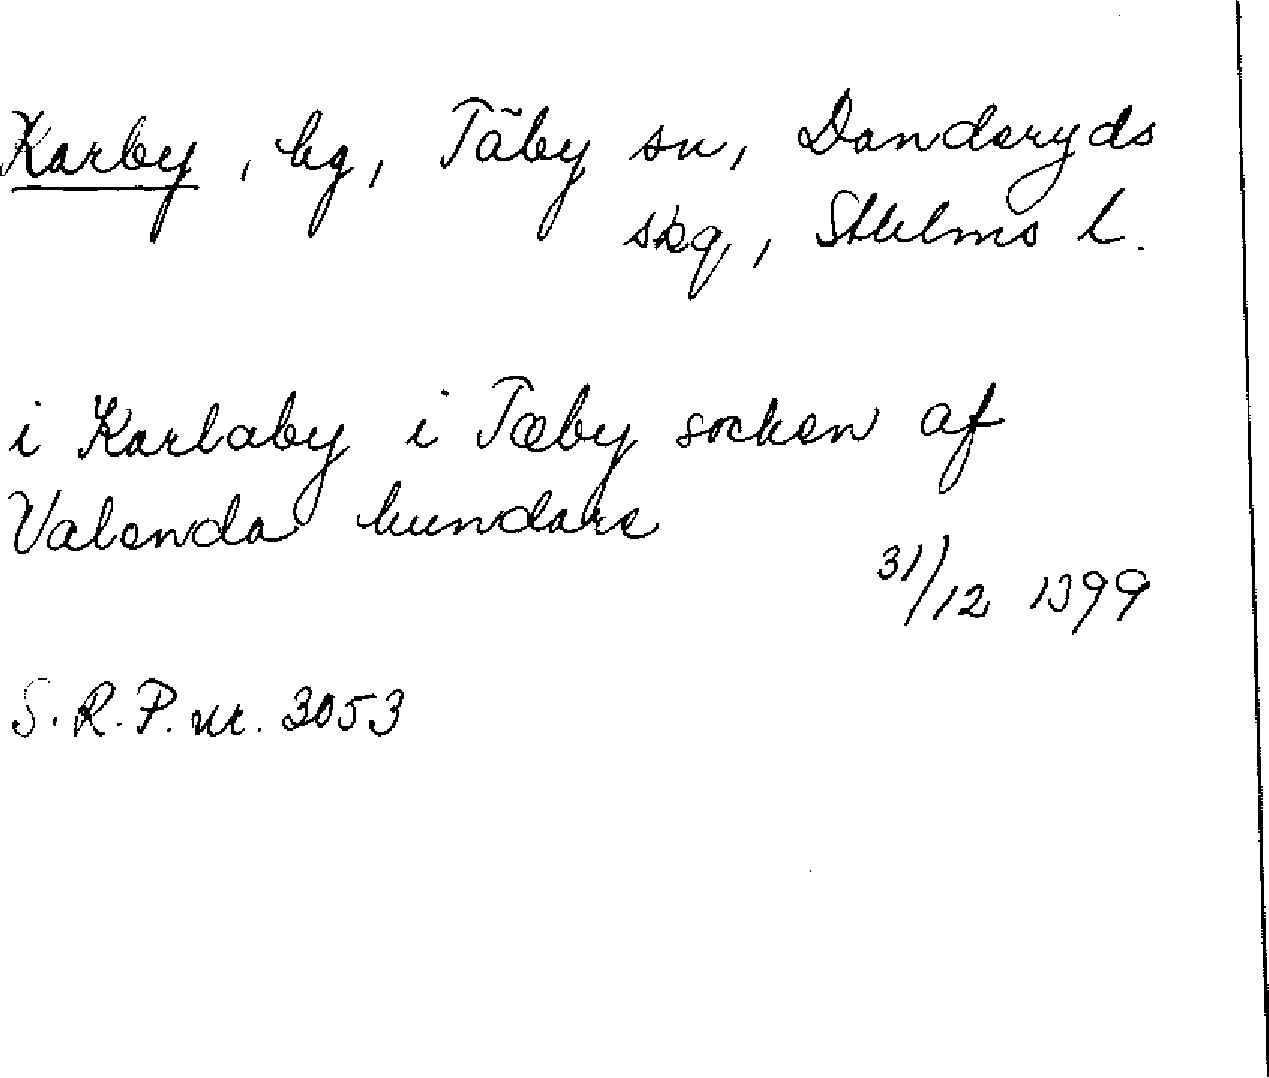 Karby, hg, Täby sn, Danderyds
skg, Sthlms l.
i Karlaby i Tæby socken af
Valenda hundare
31/12 1399
S.R.P. nr. 3053